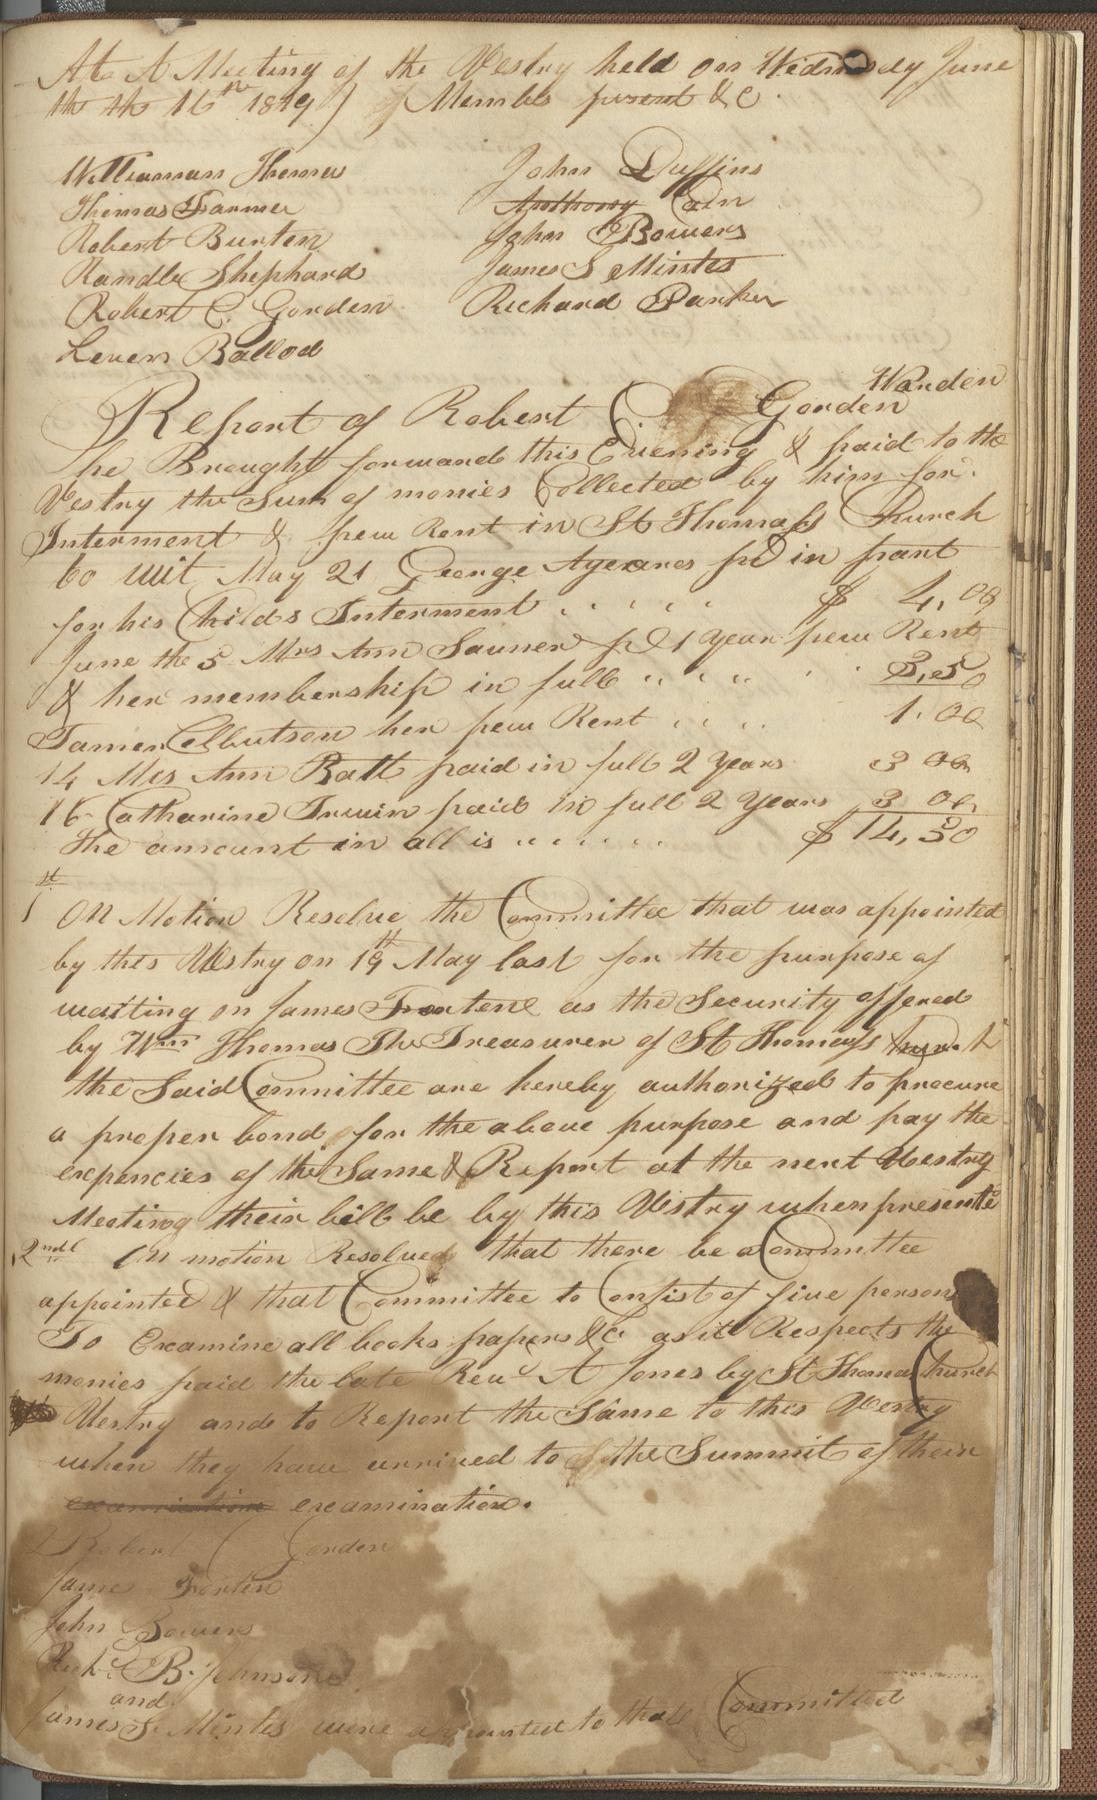 At A Meeting of the Vestry held on Wednesday June
th th 16th 1819 / of Membs present &C
Williaman Thomas
Thomas Farmer
Robert Burten
Randle Shephard
Robert C. Gorden
Leven Ballod
John Duffins
Anthony Cain
John Bowers
James S Mintes
Richard Parker
Warden
Report of Robert C Gorden
he Brought forward this Evening & paid to the
Vestry the Sum of monies Collected by him for
Interment & pew Rent in St Thomass Church
to wit May 21 George pd in part
for his Childs Interment $ 4,00
June the 5 Mrs Ann Sauner pd 1 year pew Rent
& her membership in full 3,50
Tamer her pew Rent 1.00
14 Mrs Ann Batt paid in full 2 years 3 00
16 Catharine Irwin paid in full 2 years 3 00
the amount in all is $ 14,50
1st
On Motion Resolve the Committee that was appointed
by this Vestry on 19th May last for the purpose of
waiting on James Forten as the Security offered
by Wm Thomas The Treasurer of St Thomas's Church
the Said Committee are hereby authorized to procure
a proper bond for the above purpose and pay the
expencies of the Same & Report at the next Vestry
Meeting their bill be by this Vestry when presente
2ndl On motion Resolved that there be a Committee
appointed & that Committee to Consist of five persons
To Examine all books papers &C as it Respects the
monies paid the late Revd A Jones by St Thomas Church
Vestry and to Report the Same to this Vestry
when they have arrived to the Summit of their
examination examination.
Robert C Gorden
Jame Forten
John Bowers
Richd B. Johnson
and
James S. Mintes were appointed to that Committee